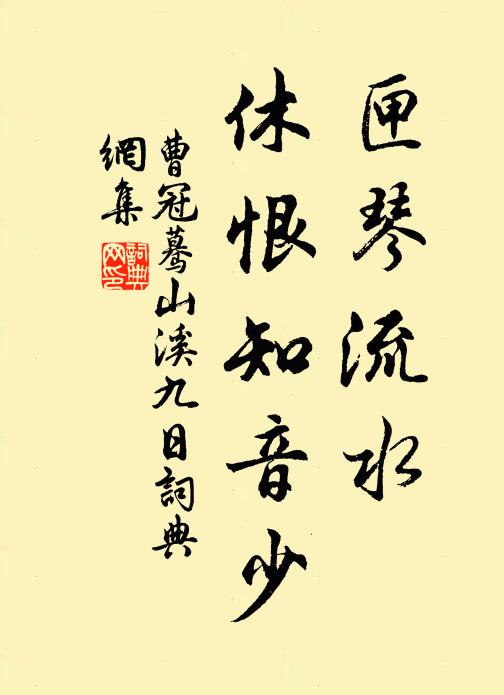 匣琴流水
休恨知音少
曹冠蓦山溪九日詞典
網集
詞典网印